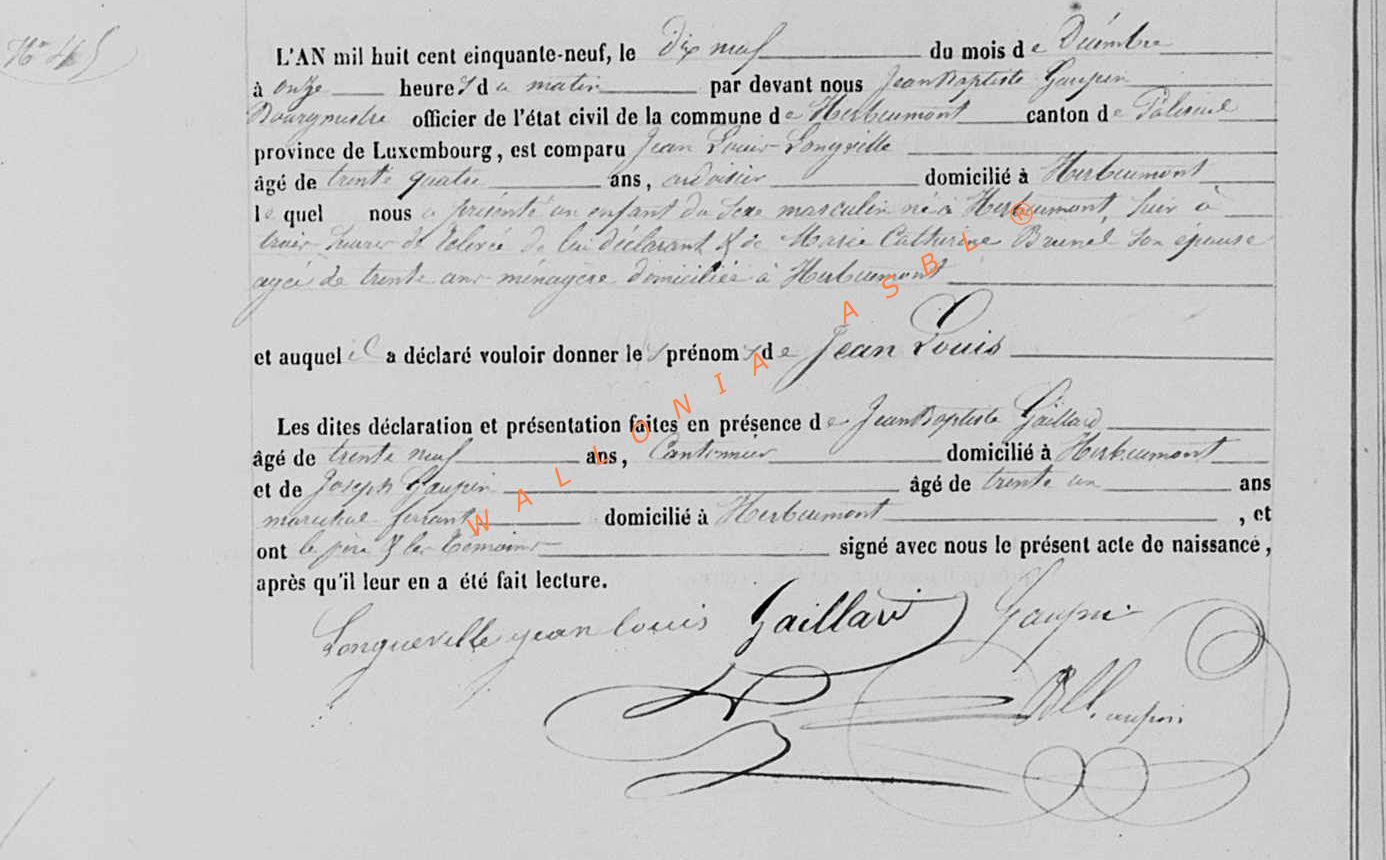 N° 45
L'AN mil huit cent cinquante-neuf, le dix neuf du mois de Décembre
à onze heures du matin par devant nous Jean Baptiste Gaupin
Bourgmestre officier de l'état civil de la commune de Herbeumont canton de Paliseul
province de Luxembourg, est comparu Jean Louis Longville
âgé de trente quatre ans, ardoisier domicilié à Herbeumont
lequel nous a présenté un enfant du sexe masculin né à Herbeumont, hier à
trois heures de relevée de lui déclarant & de Marie Catherine Brunel son épouse
agée de trente ans ménagère domiciliée à Herbeumont
et auquel il a déclaré vouloir donner les prénoms de Jean Louis
Les dites déclaration et présentation faites en présence de Jean Baptiste Gaillard
âgé de trente neuf ans, Cantonnier domicilié à Herbeumont
et de Joseph Gaupin âgé de trente un ans
maréchal ferrant domicilié à Herbeumont, et
ont le père & les témoins signé avec nous le présent acte de naissance,
après qu'il leur en a été fait lecture.
Longueville jean louis Gaillard Gaupin
WALLONIA ASBL ®